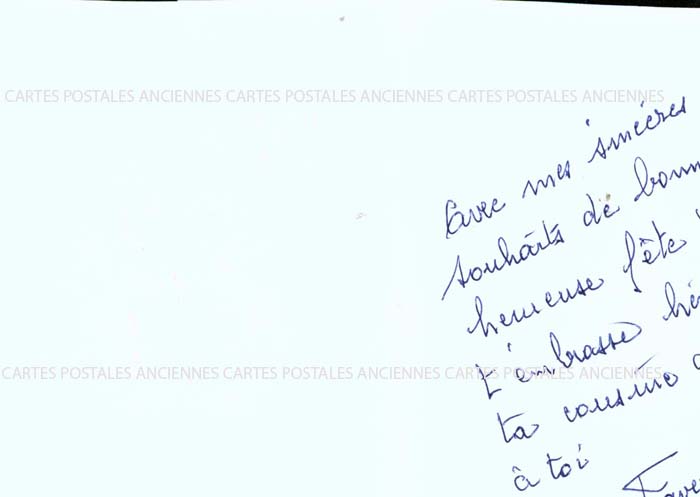 CARTES POSTALES ANCIENNES CARTES POSTALES ANCIENNES CARTES POSTALES ANCIENNES
Avec mes sincères
souhaits de
heureuse fête
t'embrasse
ta cousine
à toi
CARTES POSTALES ANCIENNES CARTES POSTALES ANCIENNES CARTES POSTALES ANCIENNES